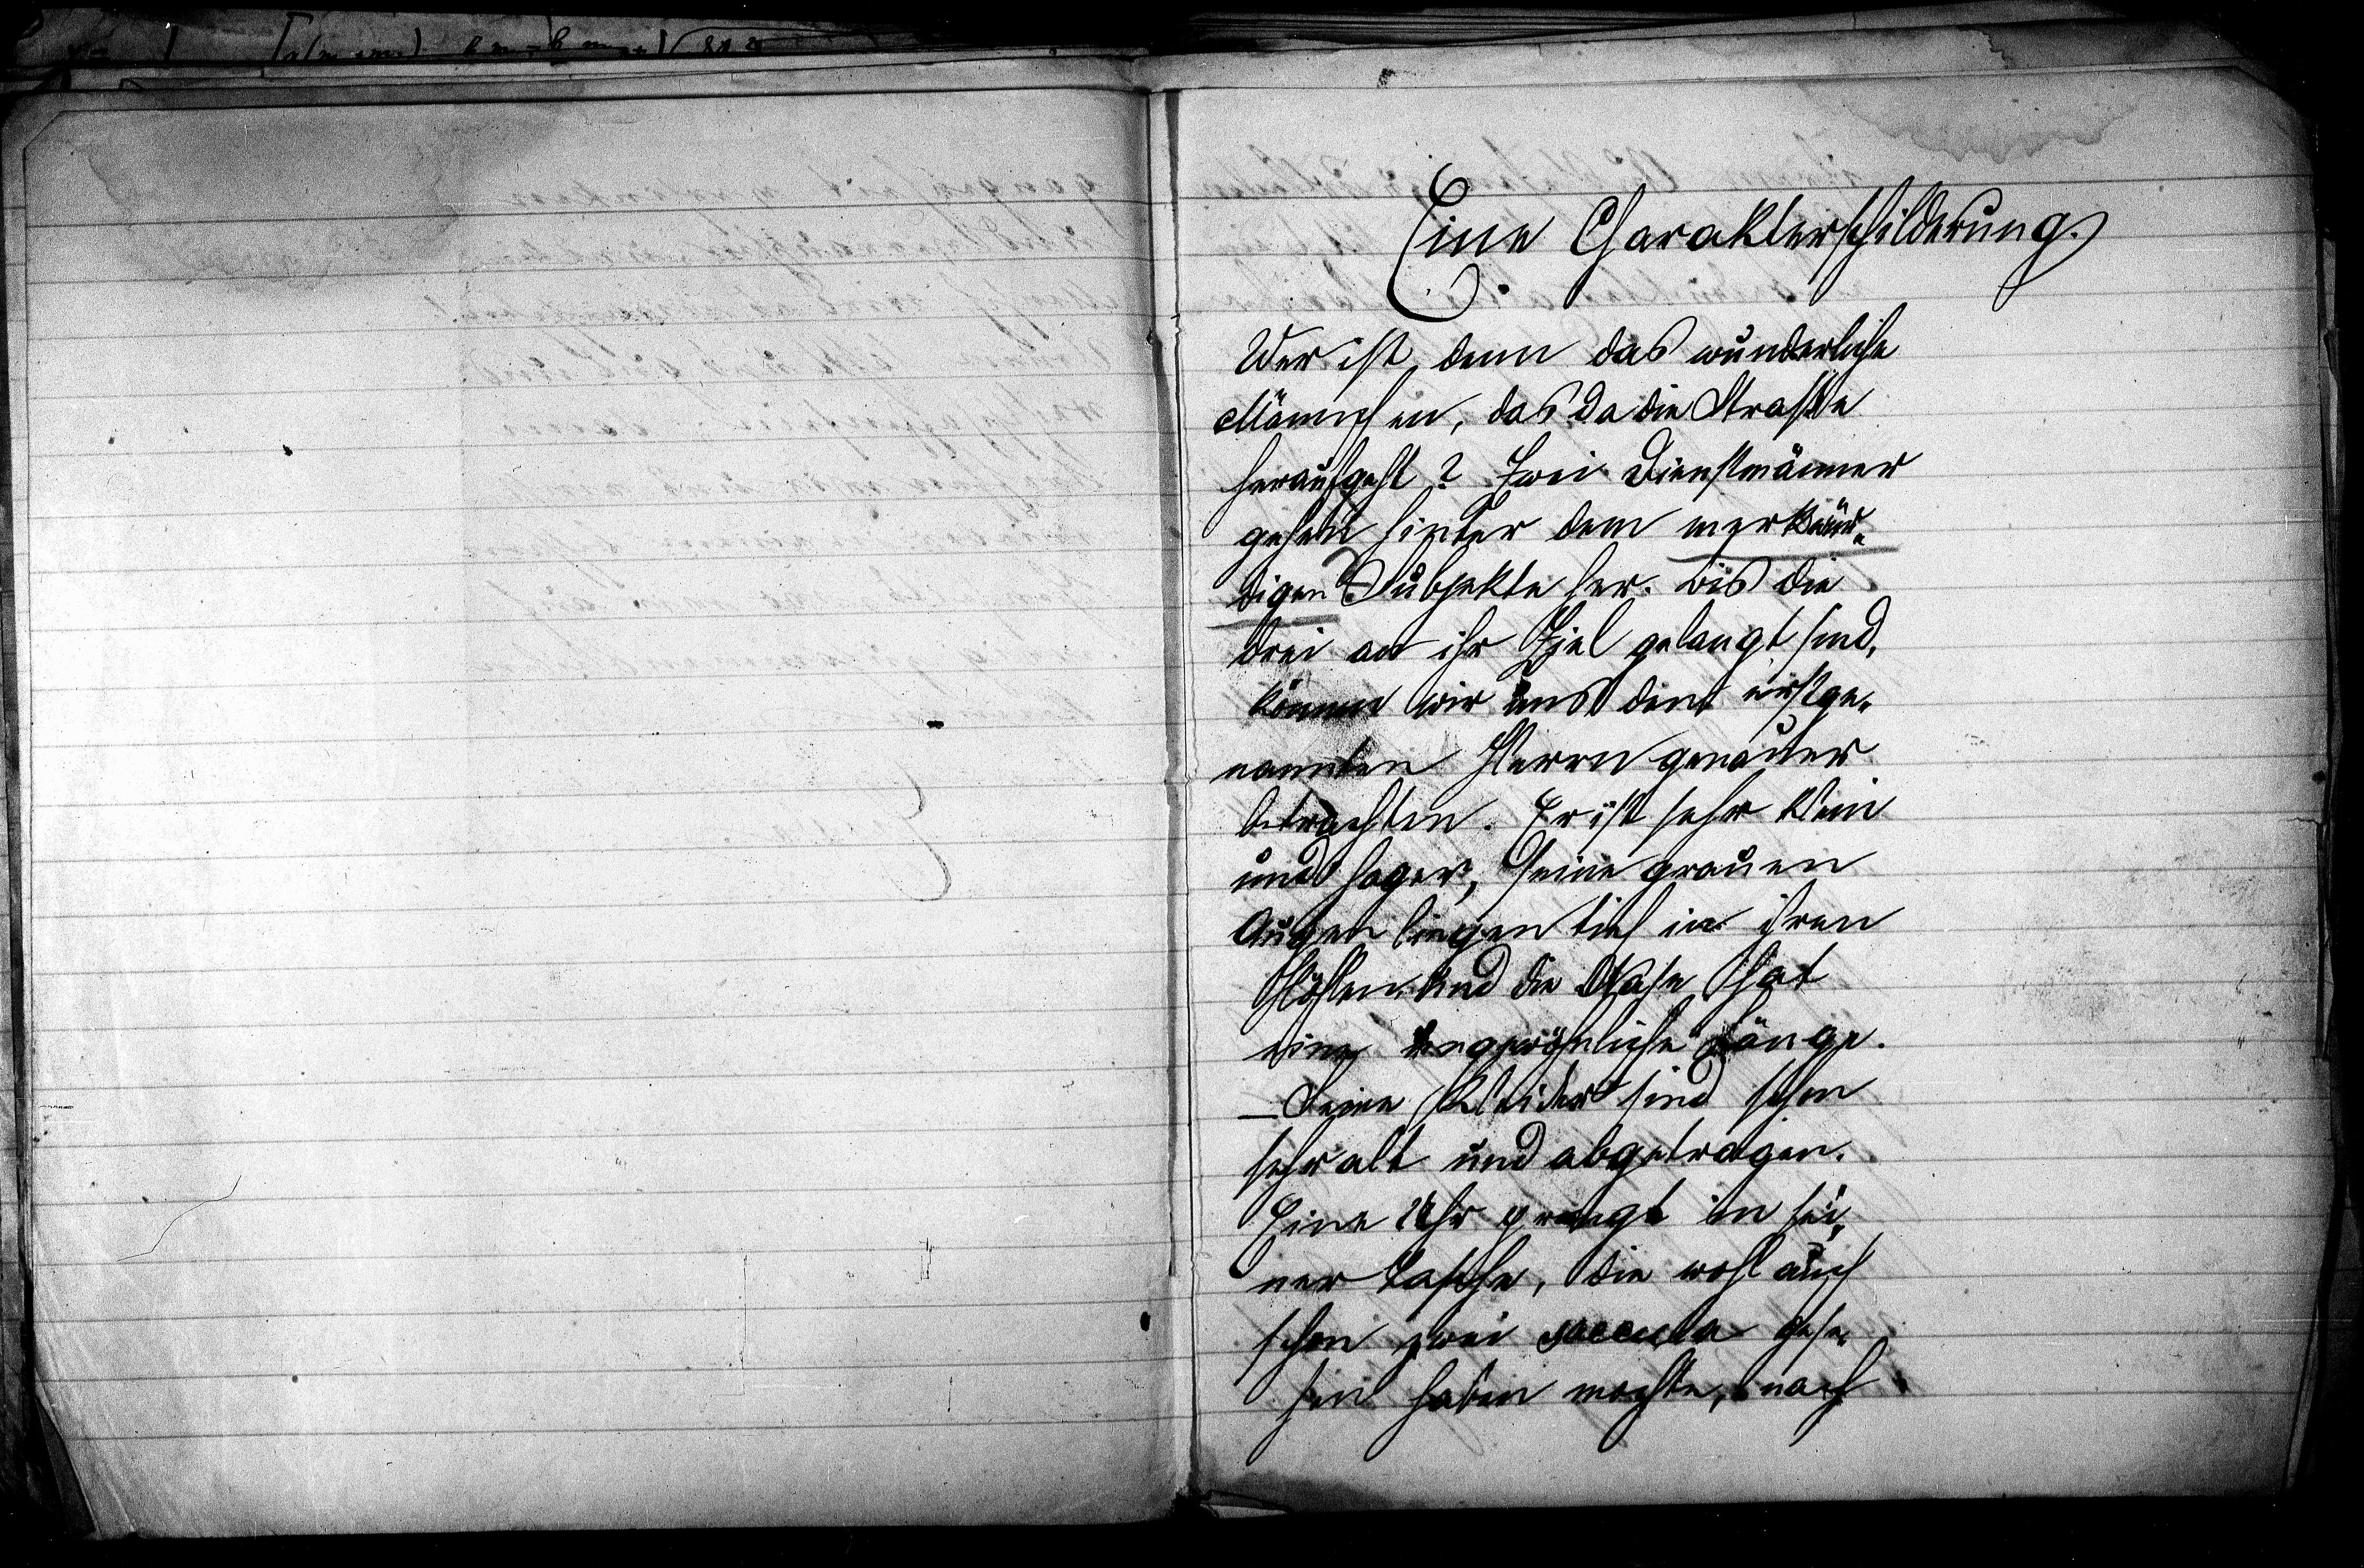 Eine Charakterschilderung.
Wer ist denn das wunderliche
Männchen, das da die Strasse
heraufgeht? Zwei Dienstmänner
gehen hinter dem merkwür-
digen Subjekte her. Bis die
drei an ihr Ziel gelangt sind,
können wir uns den erstge-
nannten Herrn genauer
betrachten. Er ist sehr klein
und hager, seine grauen
Augen liegen tief in ihren
Höhlen und die Nase hat
eine ungewöhnliche Länge.
– Seine Kleider sind schon
sehr alt und abgetragen.
Eine Uhr prangt in sei-
ner Tasche, die wohl auch
schon zwei saecula gese-
hen haben mochte, nach